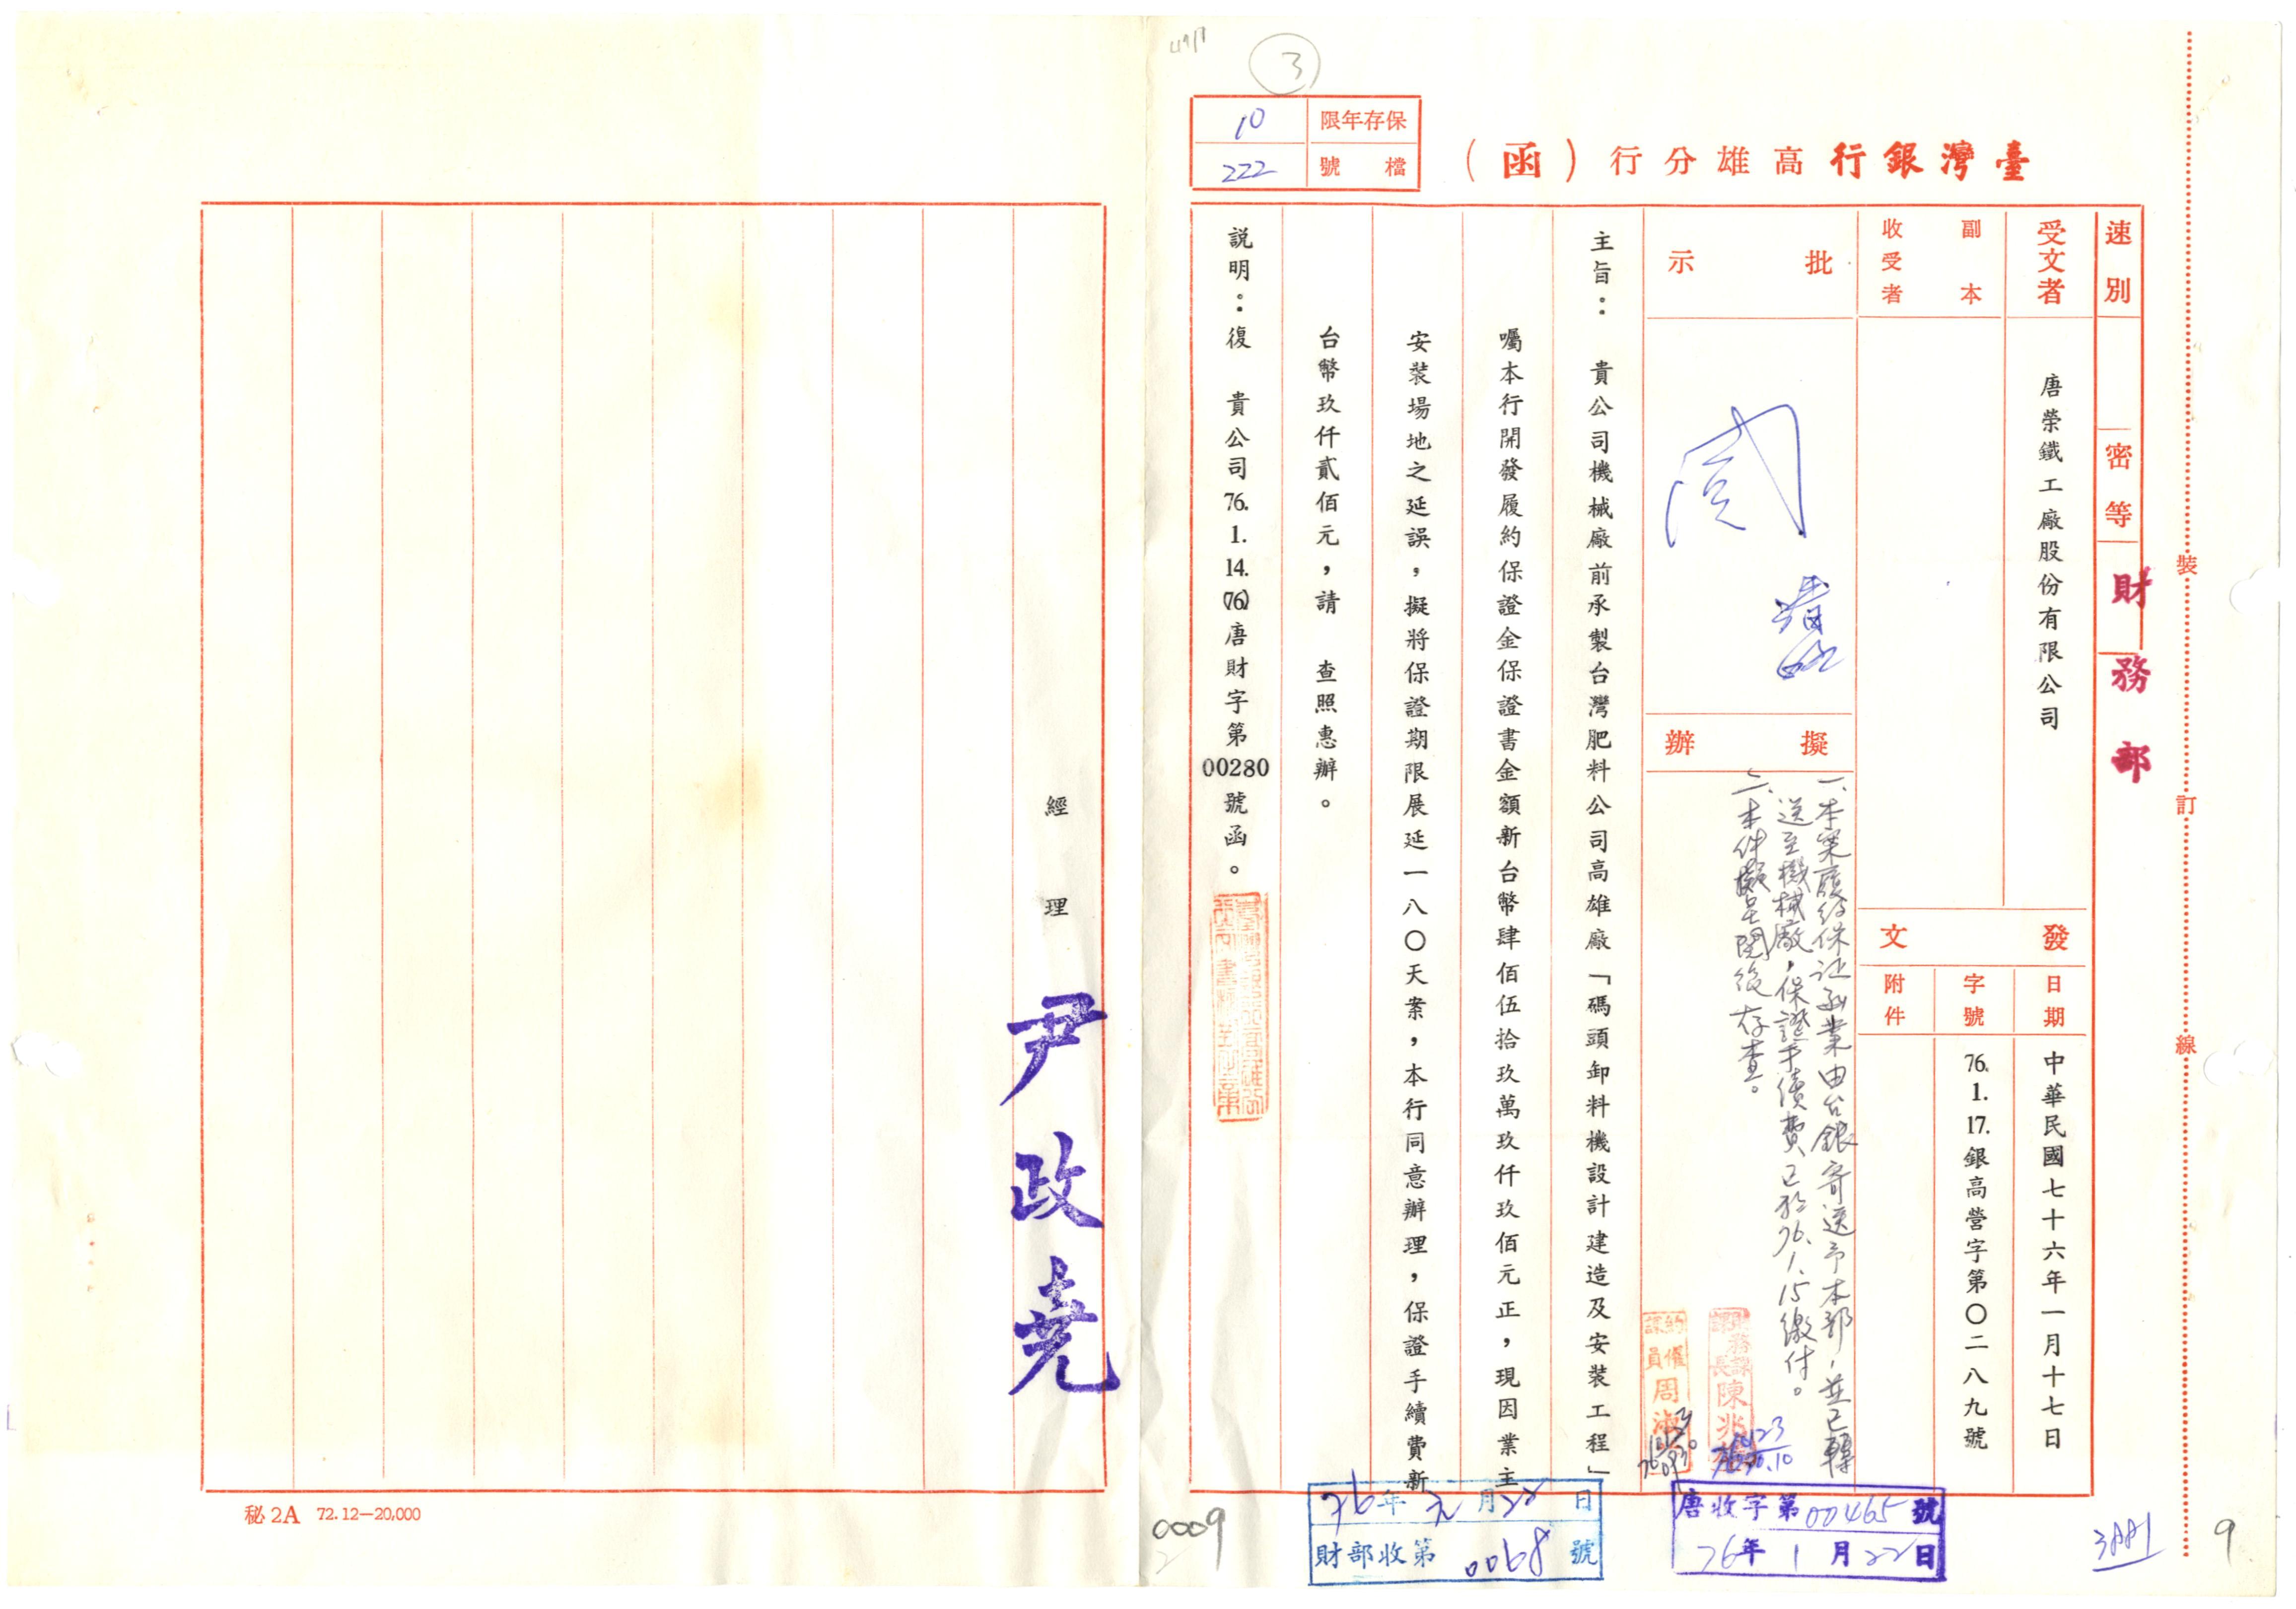 3
保存年限 10
檔號 222
臺灣銀行高雄分行(函)
速別
密等
財務部
受文者
唐榮鐵工廠股份有限公司
副本
收受者
發文
日期
中華民國七十六年一月十七日
字號
76.1.17.銀高營字第〇二八九號
附件
批示
擬辦
一、本案履約保証函業由台銀寄送予本部,並已轉
送至機械廠,保證手續費已於76.1.15繳付。
二、本件擬呈閱後存查。
主旨:貴公司機械廠前承製台灣肥料公司高雄廠「碼頭卸料機設計建造及安裝工程」
囑本行開發履約保證金保證書金額新台幣肆佰伍拾玖萬玖仟玖佰元正,現因業主
安裝場地之延誤,擬將保證期限展延一八〇天案,本行同意辦理,保證手續費新
台幣玖仟貳佰元,請 查照惠辦。
説明:復 貴公司76.1.14.(76)唐財字第00280號函。
經理 尹政堯
裝
訂
線
唐收字第00465號
76年1月22日
76年元月22日
財部收第0068號
0009
9
秘2A 72.12-20,000